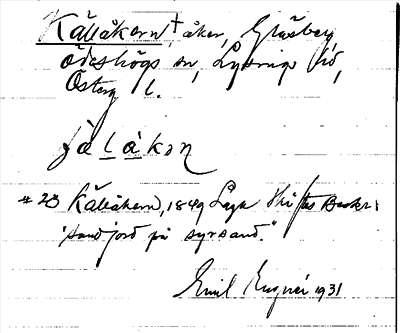 Källåkern, † åker,
ödeshögs sn, Lysings hd,
Österg l.
# 23 Källåkern, 1849 Laga Skiftes Beskr:
"sandjord på syrsand."
Emil 1931